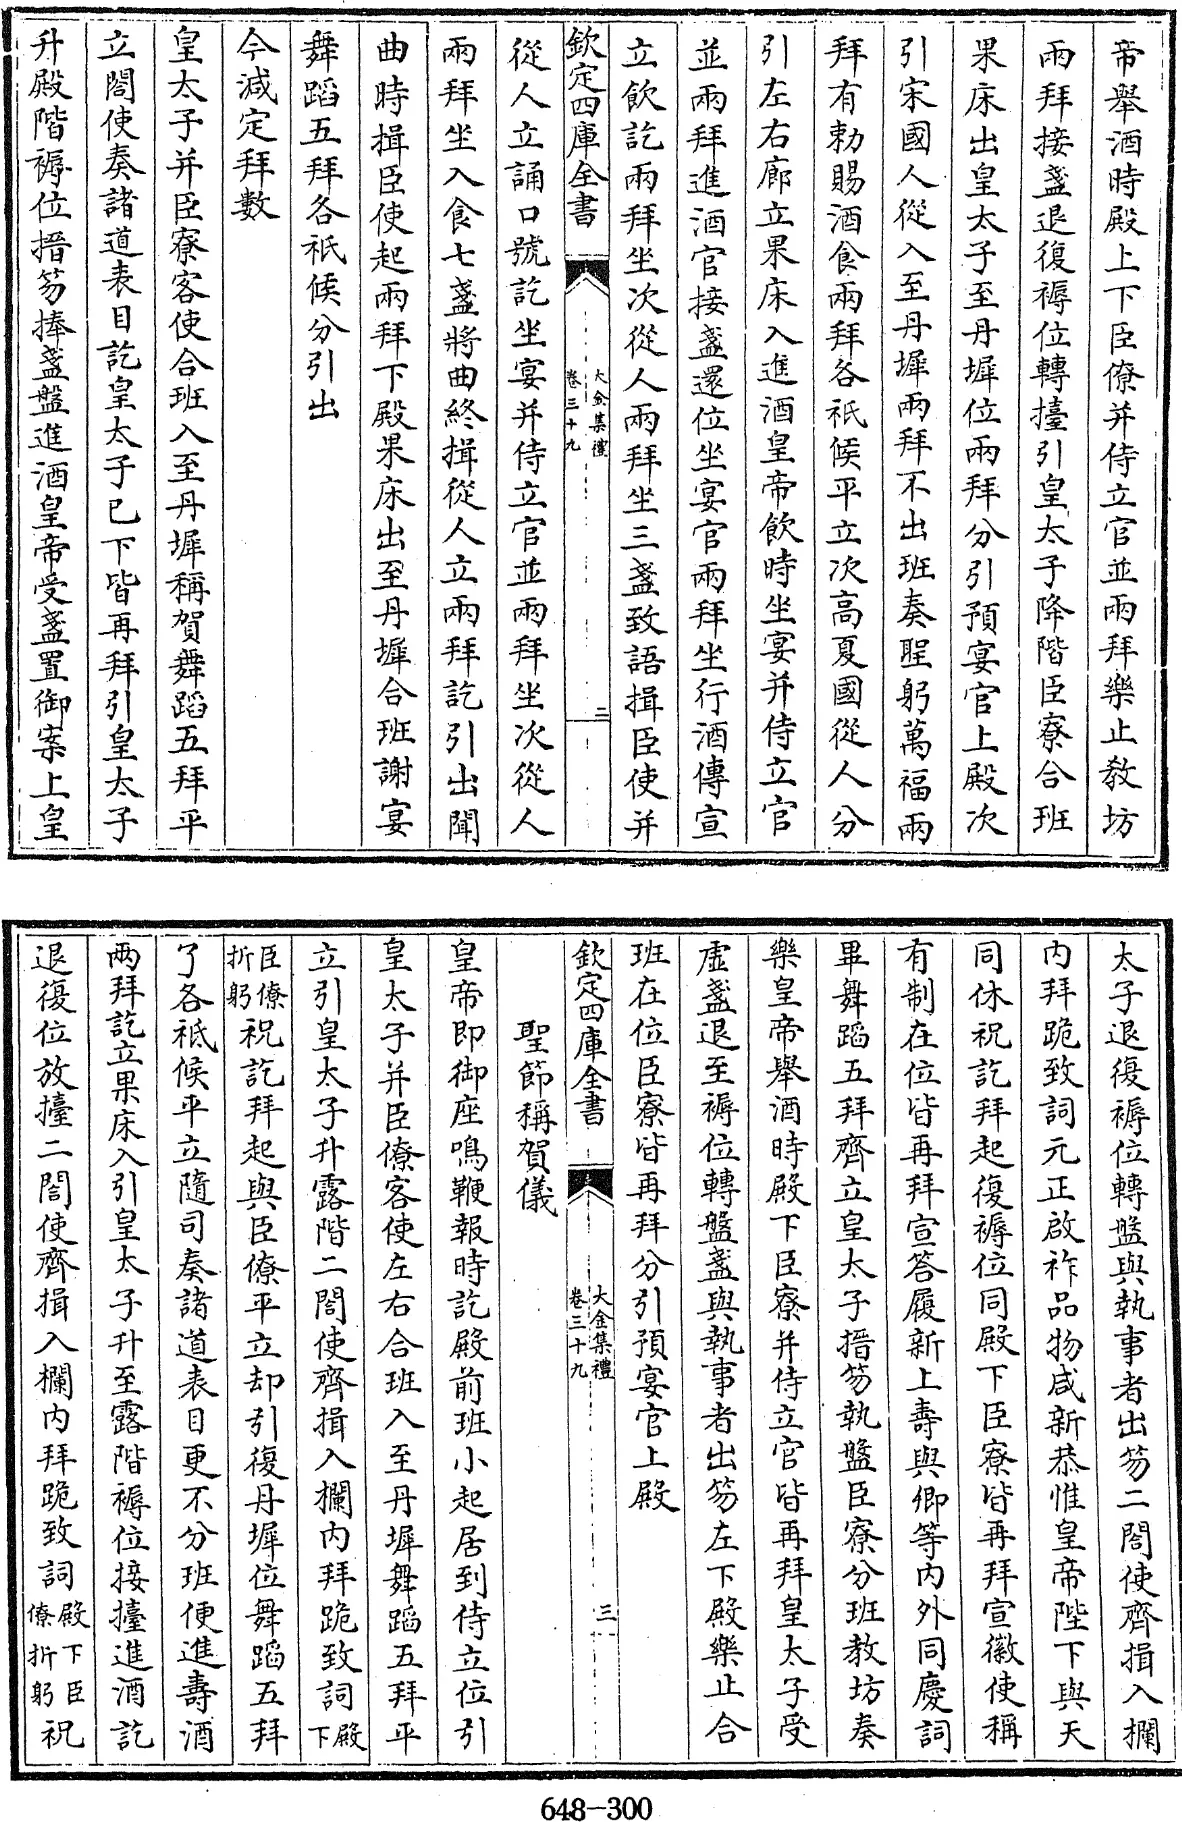 帝舉酒時殿上下臣僚并侍立官並兩拜樂止教坊
兩拜接盞退復褥位轉擡引皇太子降階臣寮合班
果床出皇太子至丹墀位兩拜分引預宴官上殿次
引宋國人從入至丹墀兩拜不出班奏聖躬萬福兩
拜有勅賜酒食兩拜各祇候平立次高夏國從人分
引左右廊立果床入進酒皇帝飲時坐宴并侍立官
並兩拜進酒官接盞還位坐宴官兩拜坐行酒傳宣
立飲訖兩拜坐次從人兩拜坐三盞致語揖臣使并
欽定四庫全書
大金集禮
卷三十九
二
從人立誦口號訖坐宴并侍立官並兩拜坐次從人
兩拜坐入食七盞將曲終揖從人立兩拜訖引出聞
曲時揖臣使起兩拜下殿果床出至丹墀合班謝宴
舞蹈五拜各祇候分引出
今減定拜數
皇太子并臣寮客使合班入至丹墀稱賀舞蹈五拜平
立閤使奏諸道表目訖皇太子已下皆再拜引皇太子
升殿階褥位搢笏捧盞盤進酒皇帝受盞置御案上皇
太子退復褥位轉盤與執事者出笏二閤使齊揖入欄
内拜跪致詞元正啟祚品物咸新恭惟皇帝陛下與天
同休祝訖拜起復褥位同殿下臣寮皆再拜宣徽使稱
有制在位皆再拜宣答履新上壽與卿等内外同慶詞
畢舞蹈五拜齊立皇太子搢笏執盤臣寮分班教坊奏
樂皇帝舉酒時殿下臣寮并侍立官皆再拜皇太子受
虛盞退至褥位轉盤盞與執事者出笏左下殿樂止合
班在位臣寮皆再拜分引預宴官上殿
欽定四庫全書
大金集禮
卷三十九
三
聖節稱賀儀
皇帝即御座鳴鞭報時訖殿前班小起居到侍立位引
皇太子并臣僚客使左右合班入至丹墀舞蹈五拜平
立引皇太子升露階二閤使齊揖入欄内拜跪致詞殿下
臣僚折躬祝訖拜起與臣僚平立却引復丹墀位舞蹈五拜
了各祇候平立隨司奏諸道表目更不分班便進壽酒
兩拜訖立果床入引皇太子升至露階褥位接擡進酒訖
退復位放擡二閤使齊揖入欄内拜跪致詞殿下臣僚折躬祝
648-300